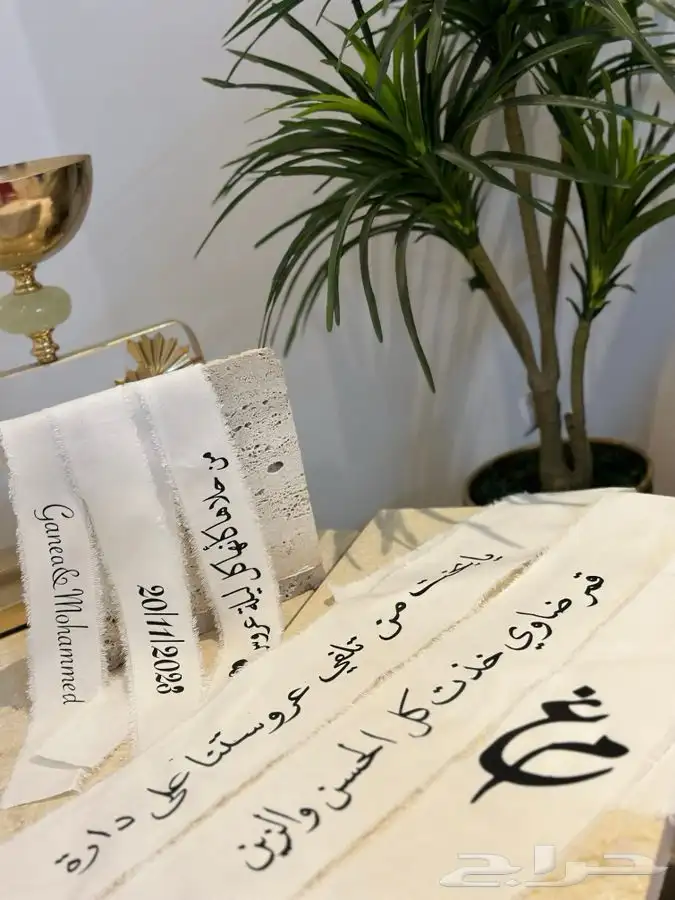 Ganea&Mohammed
20/11/2023
من حلاها كنها كل ليلة عروس
يا بخت من تلفي عروستنا على دارة
قمر ضاوي خذت كل الحسن والزين
حراج